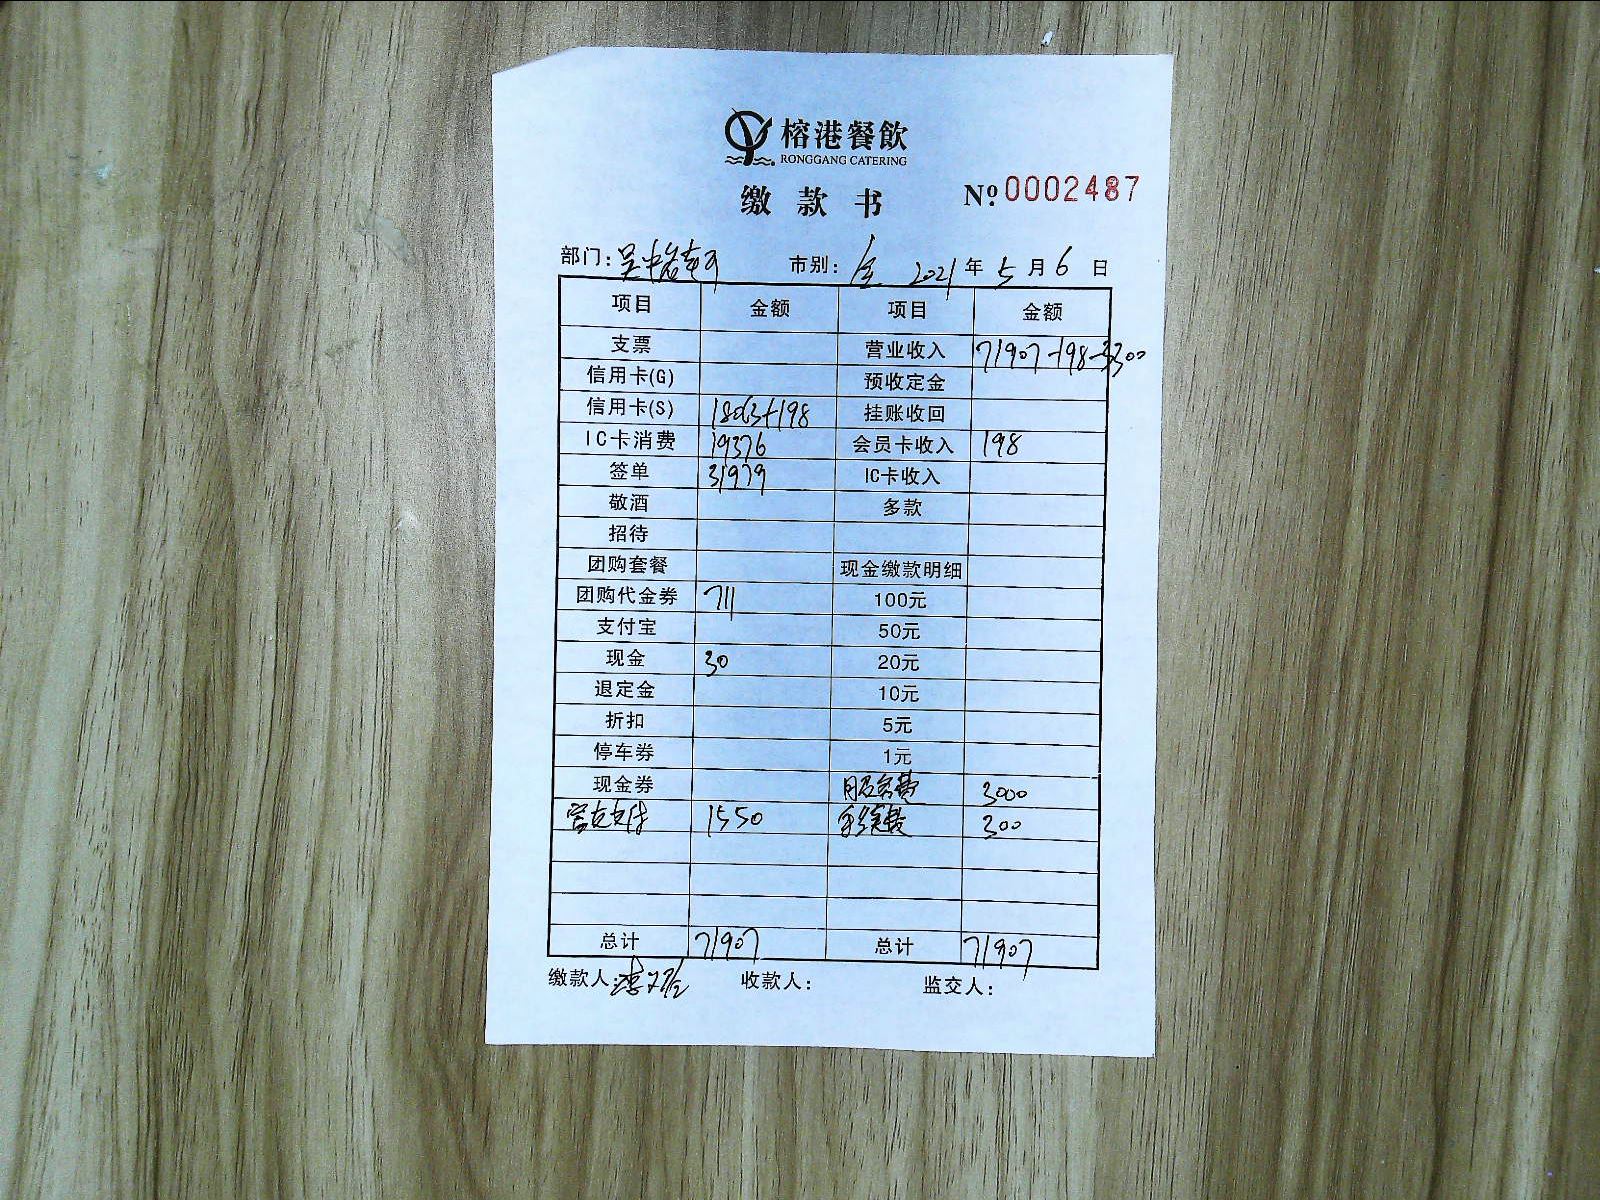 榕港餐飲
RONGGANG CATERING
缴款书 Nº 0002487
部门: 市别: 全 2021年5月6日
项目 金额 项目 金额
支票 营业收入 71907-198-3300
信用卡(G) 预收定金
信用卡(S) 18063+198 挂账收回
IC卡消费 19376 会员卡收入 198
签单 31979 IC卡收入
敬酒 多款
招待
团购套餐 现金缴款明细
团购代金券 711 100元
支付宝 50元
现金 30 20元
退定金 10元
折扣 5元
停车券 1元
现金券 服务费 3000
支付 1550 手续费 300
总计 71907 总计 71907
缴款人: 收款人: 监交人: